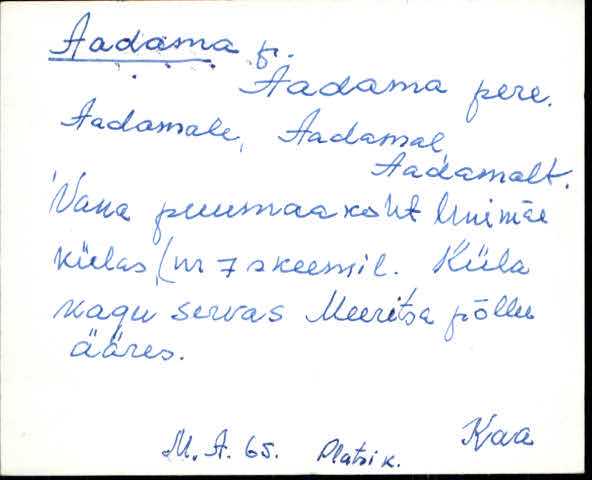 Aadama p.
Aadama pere.
Aadamale, Aadamal,
Aadamalt.
Vana puumaakoht Unimäe
külas (nr 7 skeemil. Küla
kagu servas Meeritsa põllu
ääres.
Kaa
M. A. 65. Platsik.